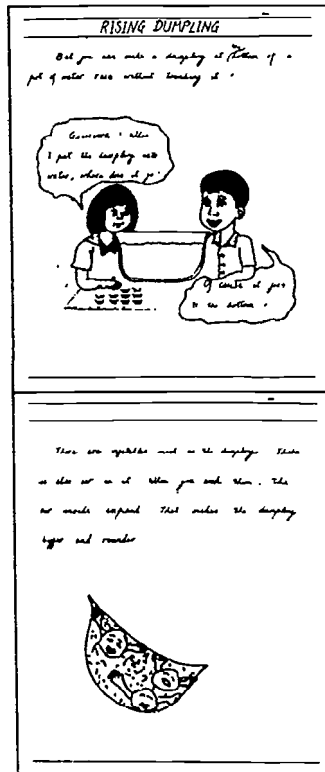 RISING DUMPLING
Bet you can make a dumpling at the bottom of a
pot of water rise without touching it !
after
I put the dumpling into
water, where does it go?
Of course it goes
to the bottom !
There are vegetables and meat in the dumpling. There
is also air in it. When you cook them. The
air inside expand. That makes the dumpling
bigger and rounder